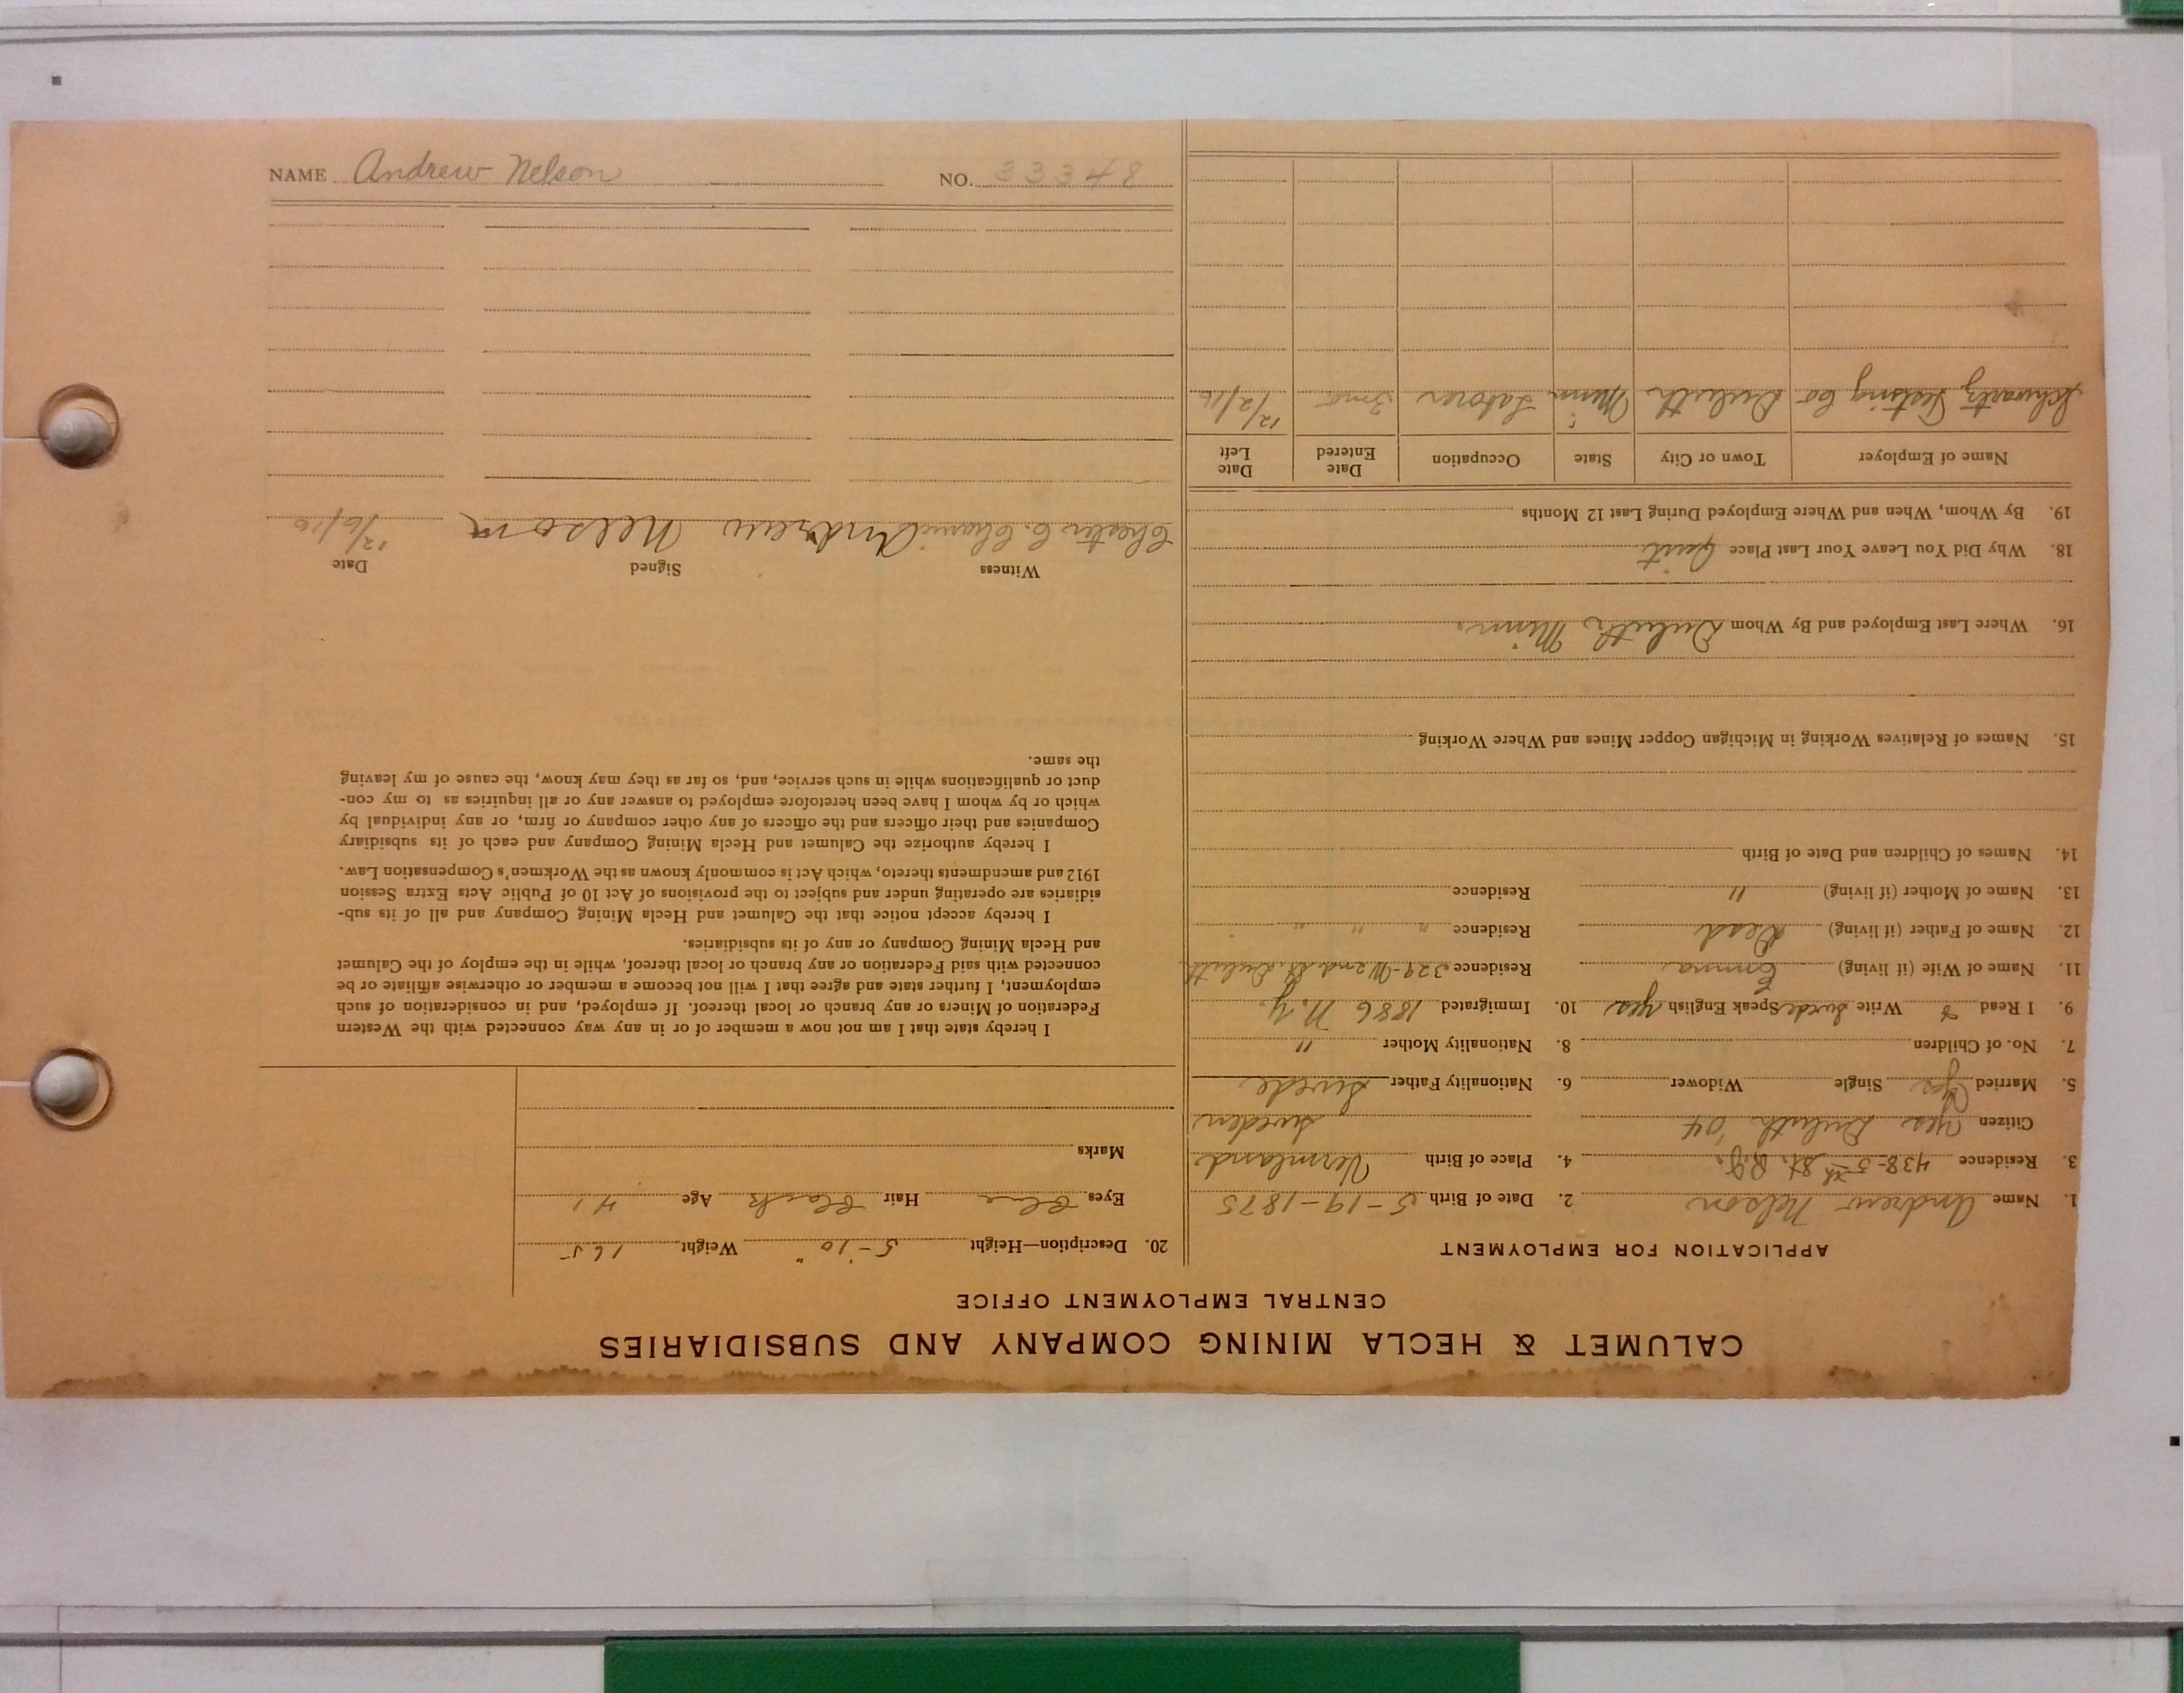 CALUMET & HECLA MINING COMPANY AND SUBSIDIARIES
CENTRAL EMPLOYMENT OFFICE
APPLICATION FOR EMPLOYMENT
1. Name Andrew Nelson 2. Date of Birth 5-19-1875
3. Residence 438-5th St. 4. Place of Birth Vermland
Citizen Yes Duluth '04 Sweden
5. Married Yes Single Widower 6. Nationality Father Swede
7. No. of Children 8. Nationality Mother "
9. I Read & Write Swede Speak English yes 10. Immigrated 1886 N.Y.
11. Name of Wife (if living) Emma Residence 329-W 2nd St. Duluth
12. Name of Father (if living) Dead Residence " " "
13. Name of Mother (if living) " Residence
14. Names of Children and Date of Birth
15. Names of Relatives Working in Michigan Copper Mines and Where Working
16. Where Last Employed and By Whom Duluth, Minn.
18. Why Did You Leave Your Last Place Quit
19. By Whom, When and Where Employed During Last 12 Months
Name of Employer Town or City State Occupation Date Entered Date Left
Schwartz Testing Co Duluth Minn. Laborer 3 mo 12/2/16
20. Description—Height 5-10" Weight 165
Eyes Blue Hair Black Age 41
Marks
I hereby state that I am not now a member of or in any way connected with the Western
Federation of Miners or any branch or local thereof. If employed, and in consideration of such
employment, I further state and agree that I will not become a member or otherwise affiliate or be
connected with said Federation or any branch or local thereof, while in the employ of the Calumet
and Hecla Mining Company or any of its subsidiaries.
I hereby accept notice that the Calumet and Hecla Mining Company and all of its sub-
sidiaries are operating under and subject to the provisions of Act 10 of Public Acts Extra Session
1912 and amendments thereto, which Act is commonly known as the Workmen's Compensation Law.
I hereby authorize the Calumet and Hecla Mining Company and each of its subsidiary
Companies and their officers and the officers of any other company or firm, or any individual by
which or by whom I have been heretofore employed to answer any or all inquiries as to my con-
duct or qualifications while in such service, and, so far as they may know, the cause of my leaving
the same.
Witness Signed Date
Chester C. Andrew Nelson 12/6/16
NAME Andrew Nelson NO. 33348